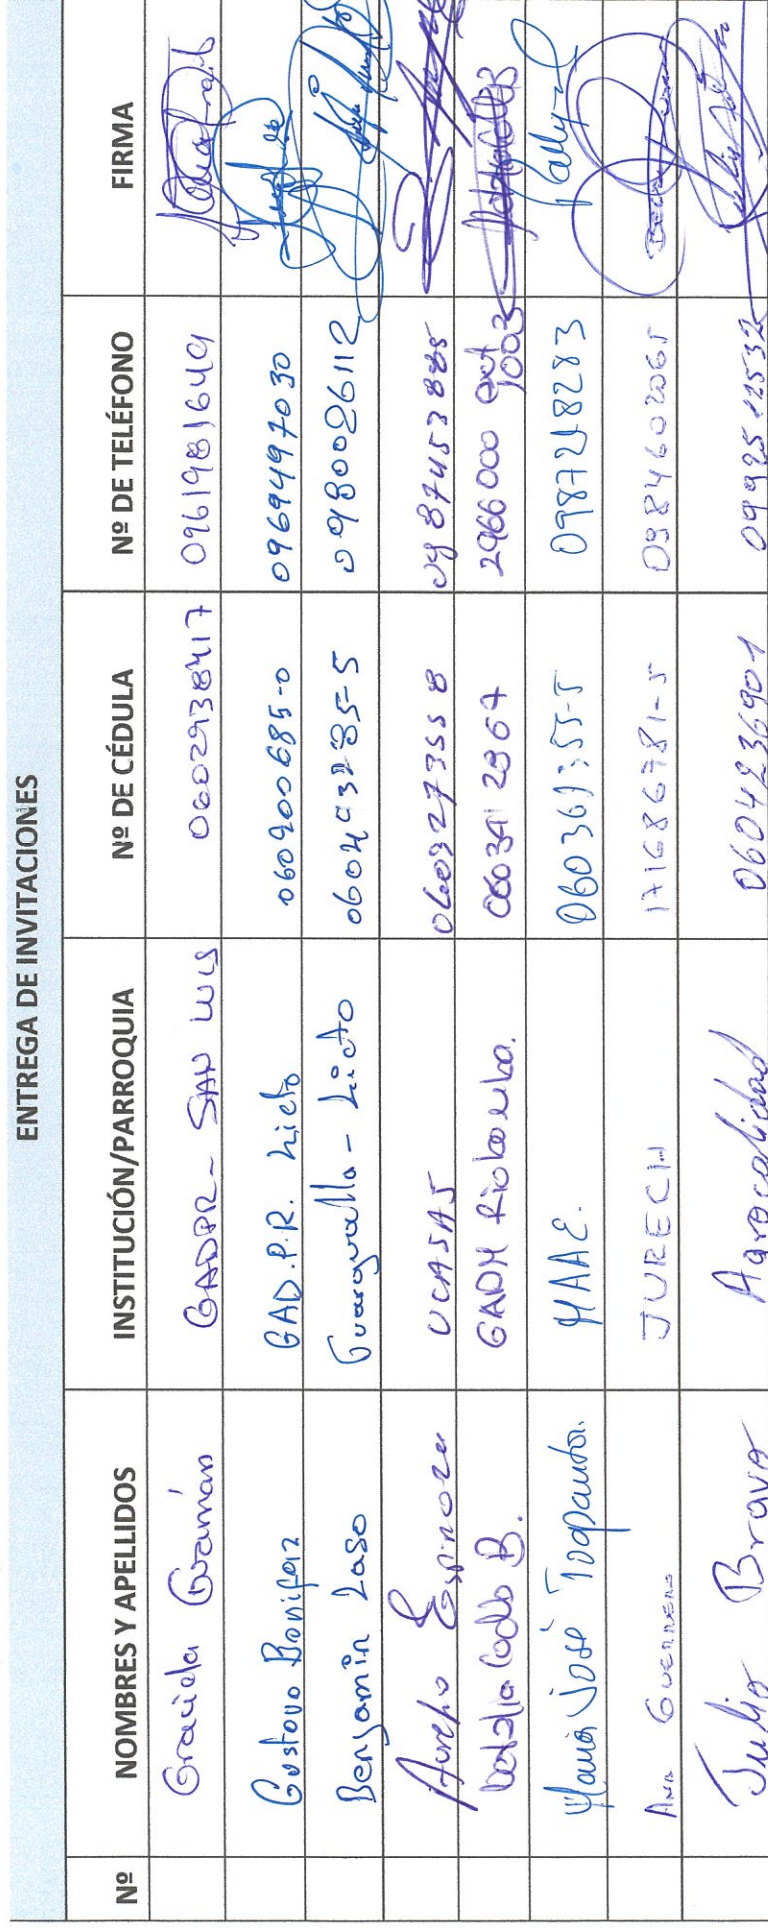 ENTREGA DE INVITACIONES
Nº NOMBRES Y APELLIDOS INSTITUCIÓN/PARROQUIA Nº DE CÉDULA Nº DE TELÉFONO FIRMA
Graciela Guzmán GADPR - SAN LUIS 0602938417 0961981649
Gustavo Bonifaz GAD.P.R. Licto 060200685-0 0969497030
Benjamin Laso Guaruñalla - Licto 0980026112
Aurelio Espinoza UCASAJ 0603273558 0987453885
Natalia Coello B. GADM Riobamba. 0603412967 2966000 ext 1003
María José Toapanta. MAAE. 0987218283
Ana Guerrero JURECH 171686781-5 0984602065
Julio Bravo Agrocalidad 0604236901 0992512532